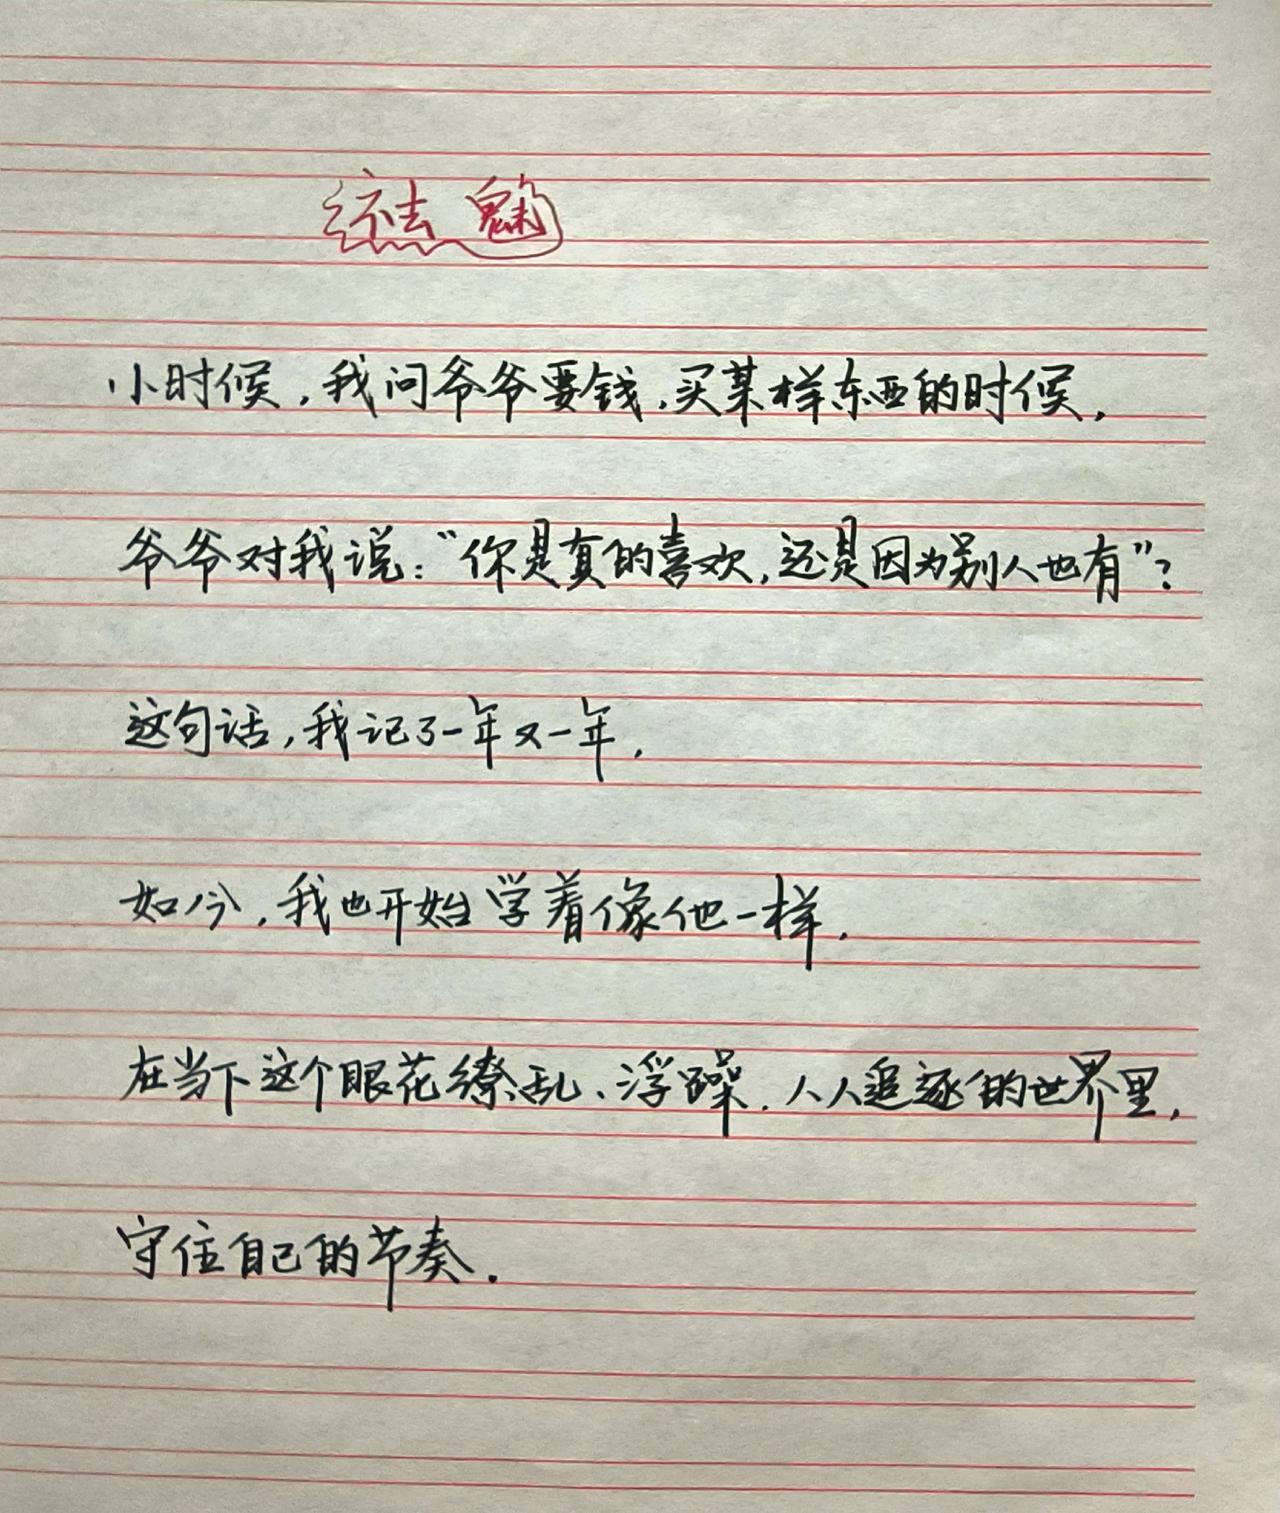 祛魅
小时候,我问爷爷要钱,买某样东西的时候,
爷爷对我说:“你是真的喜欢,还是因为别人也有”?
这句话,我记了一年又一年,
如今,我也开始学着像他一样,
在当下这个眼花缭乱、浮躁、人人追逐的世界里,
守住自己的节奏.